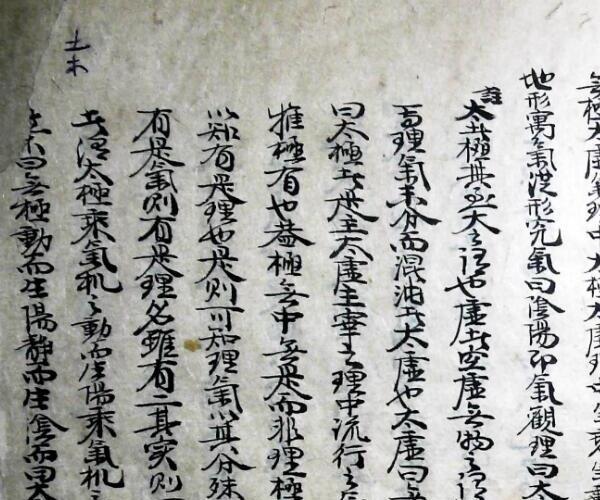 無極太虛氣中理太極太虛理中氣
地形寓氣從形究氣曰陰陽卽氣觀理曰太
註
太者極無至大之謂也虛者空虛無物之謂
言理氣未分而混沌者太虛也太虛曰
曰太極者是主太虛主宰之理中流行之
推極有也蓋極無中無是而非理極
以知有是理也是則可知理氣以其分殊
有是氣則有是理名雖有二其實則
者謂太極乘氣机之動而生陽乘氣机之
曰無極動而生陽靜而生陰而曰太